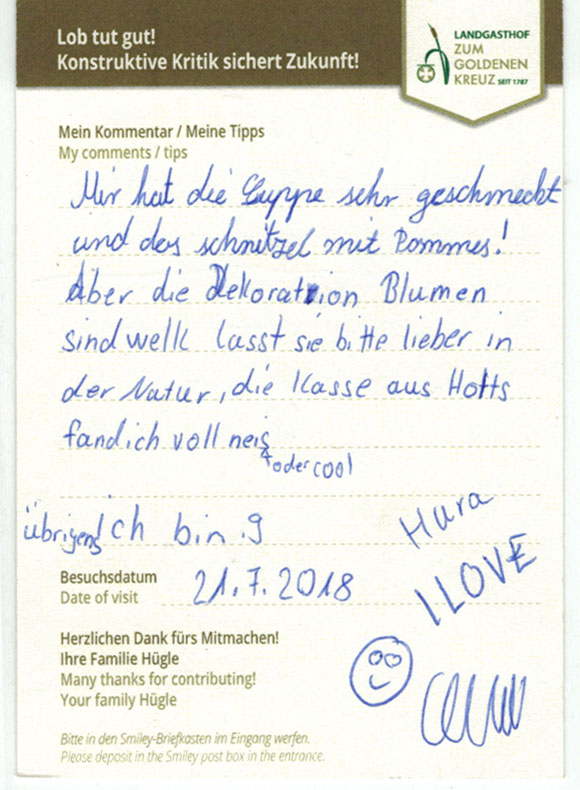 Lob tut gut!
Konstruktive Kritik sichert Zukunft!
LANDGASTHOF
ZUM
GOLDENEN
KREUZ SEIT 1787
Mein Kommentar / Meine Tipps
My comments / tips
Mir hat die Suppe sehr geschmeckt
und das schnitzel mit Pommes!
Aber die Dekoration Blumen
sind welk lasst sie bitte lieber in
der Natur, die Kasse aus Holts
fand ich voll neis
oder cool
übrigens ich bin 9
Hura
I LOVE
Besuchsdatum
Date of visit
21.7.2018
Herzlichen Dank fürs Mitmachen!
Ihre Familie Hügle
Many thanks for contributing!
Your family Hügle
Bitte in den Smiley-Briefkasten im Eingang werfen.
Please deposit in the Smiley post box in the entrance.